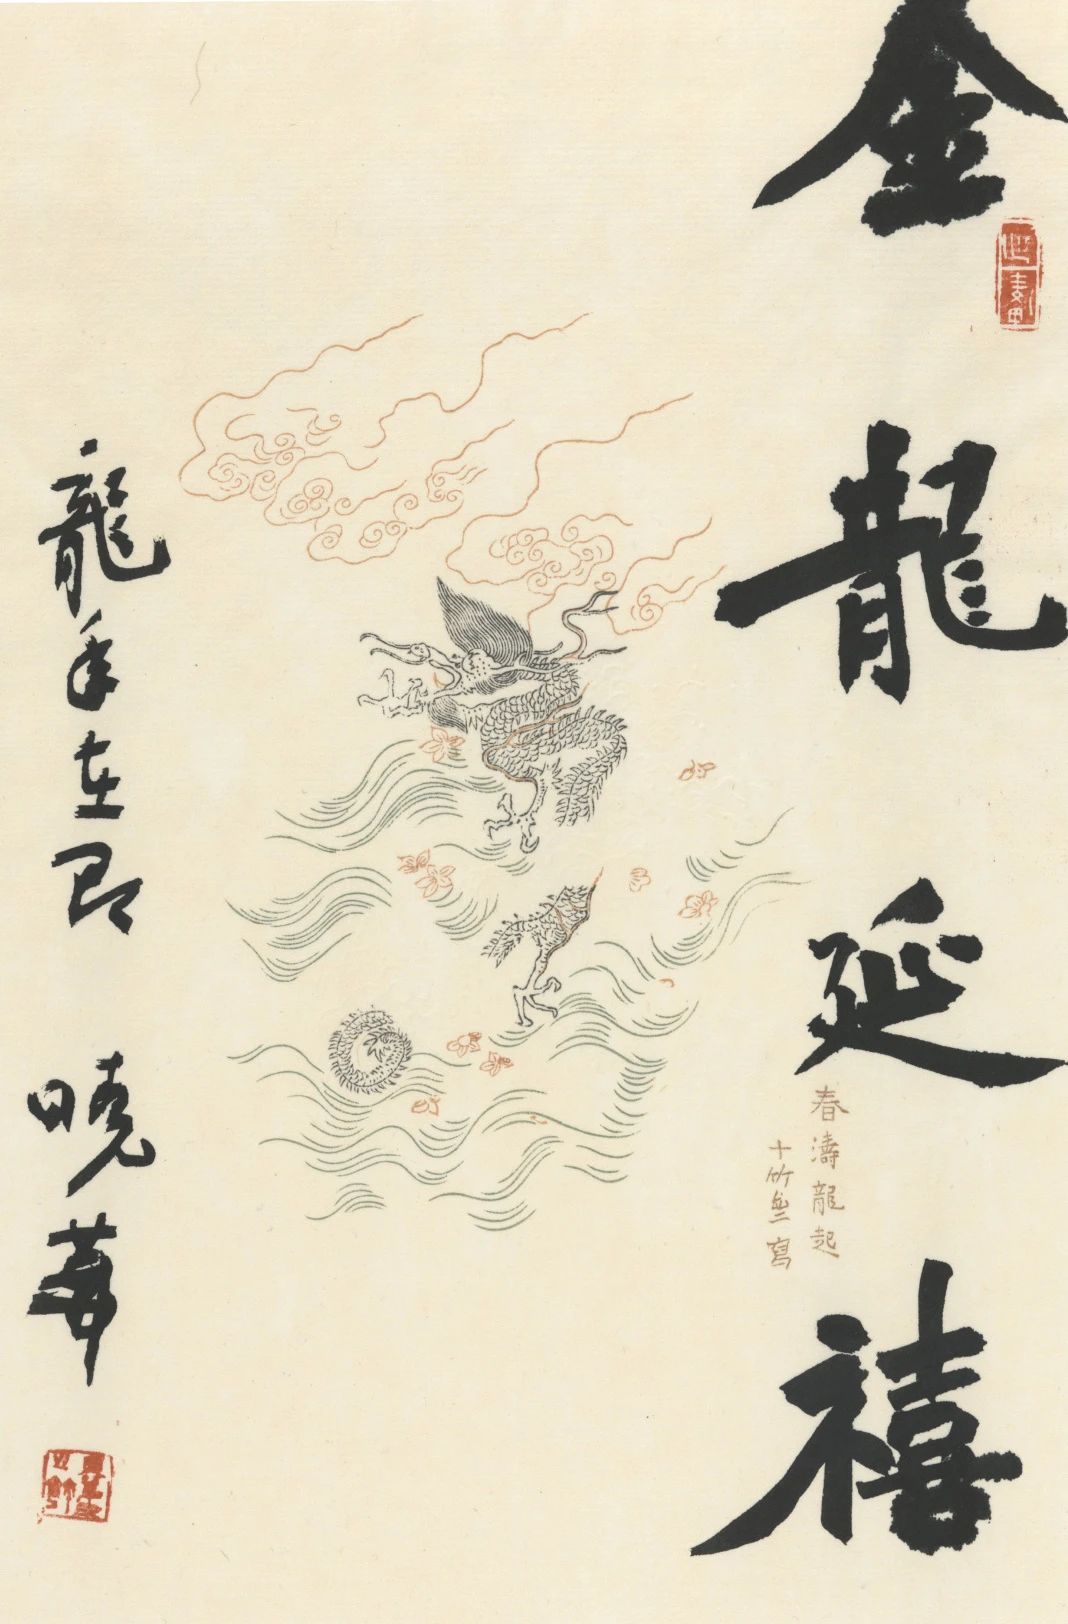 金龍延禧
春濤龍起
十竹齋寫
龍年在即 曉夢